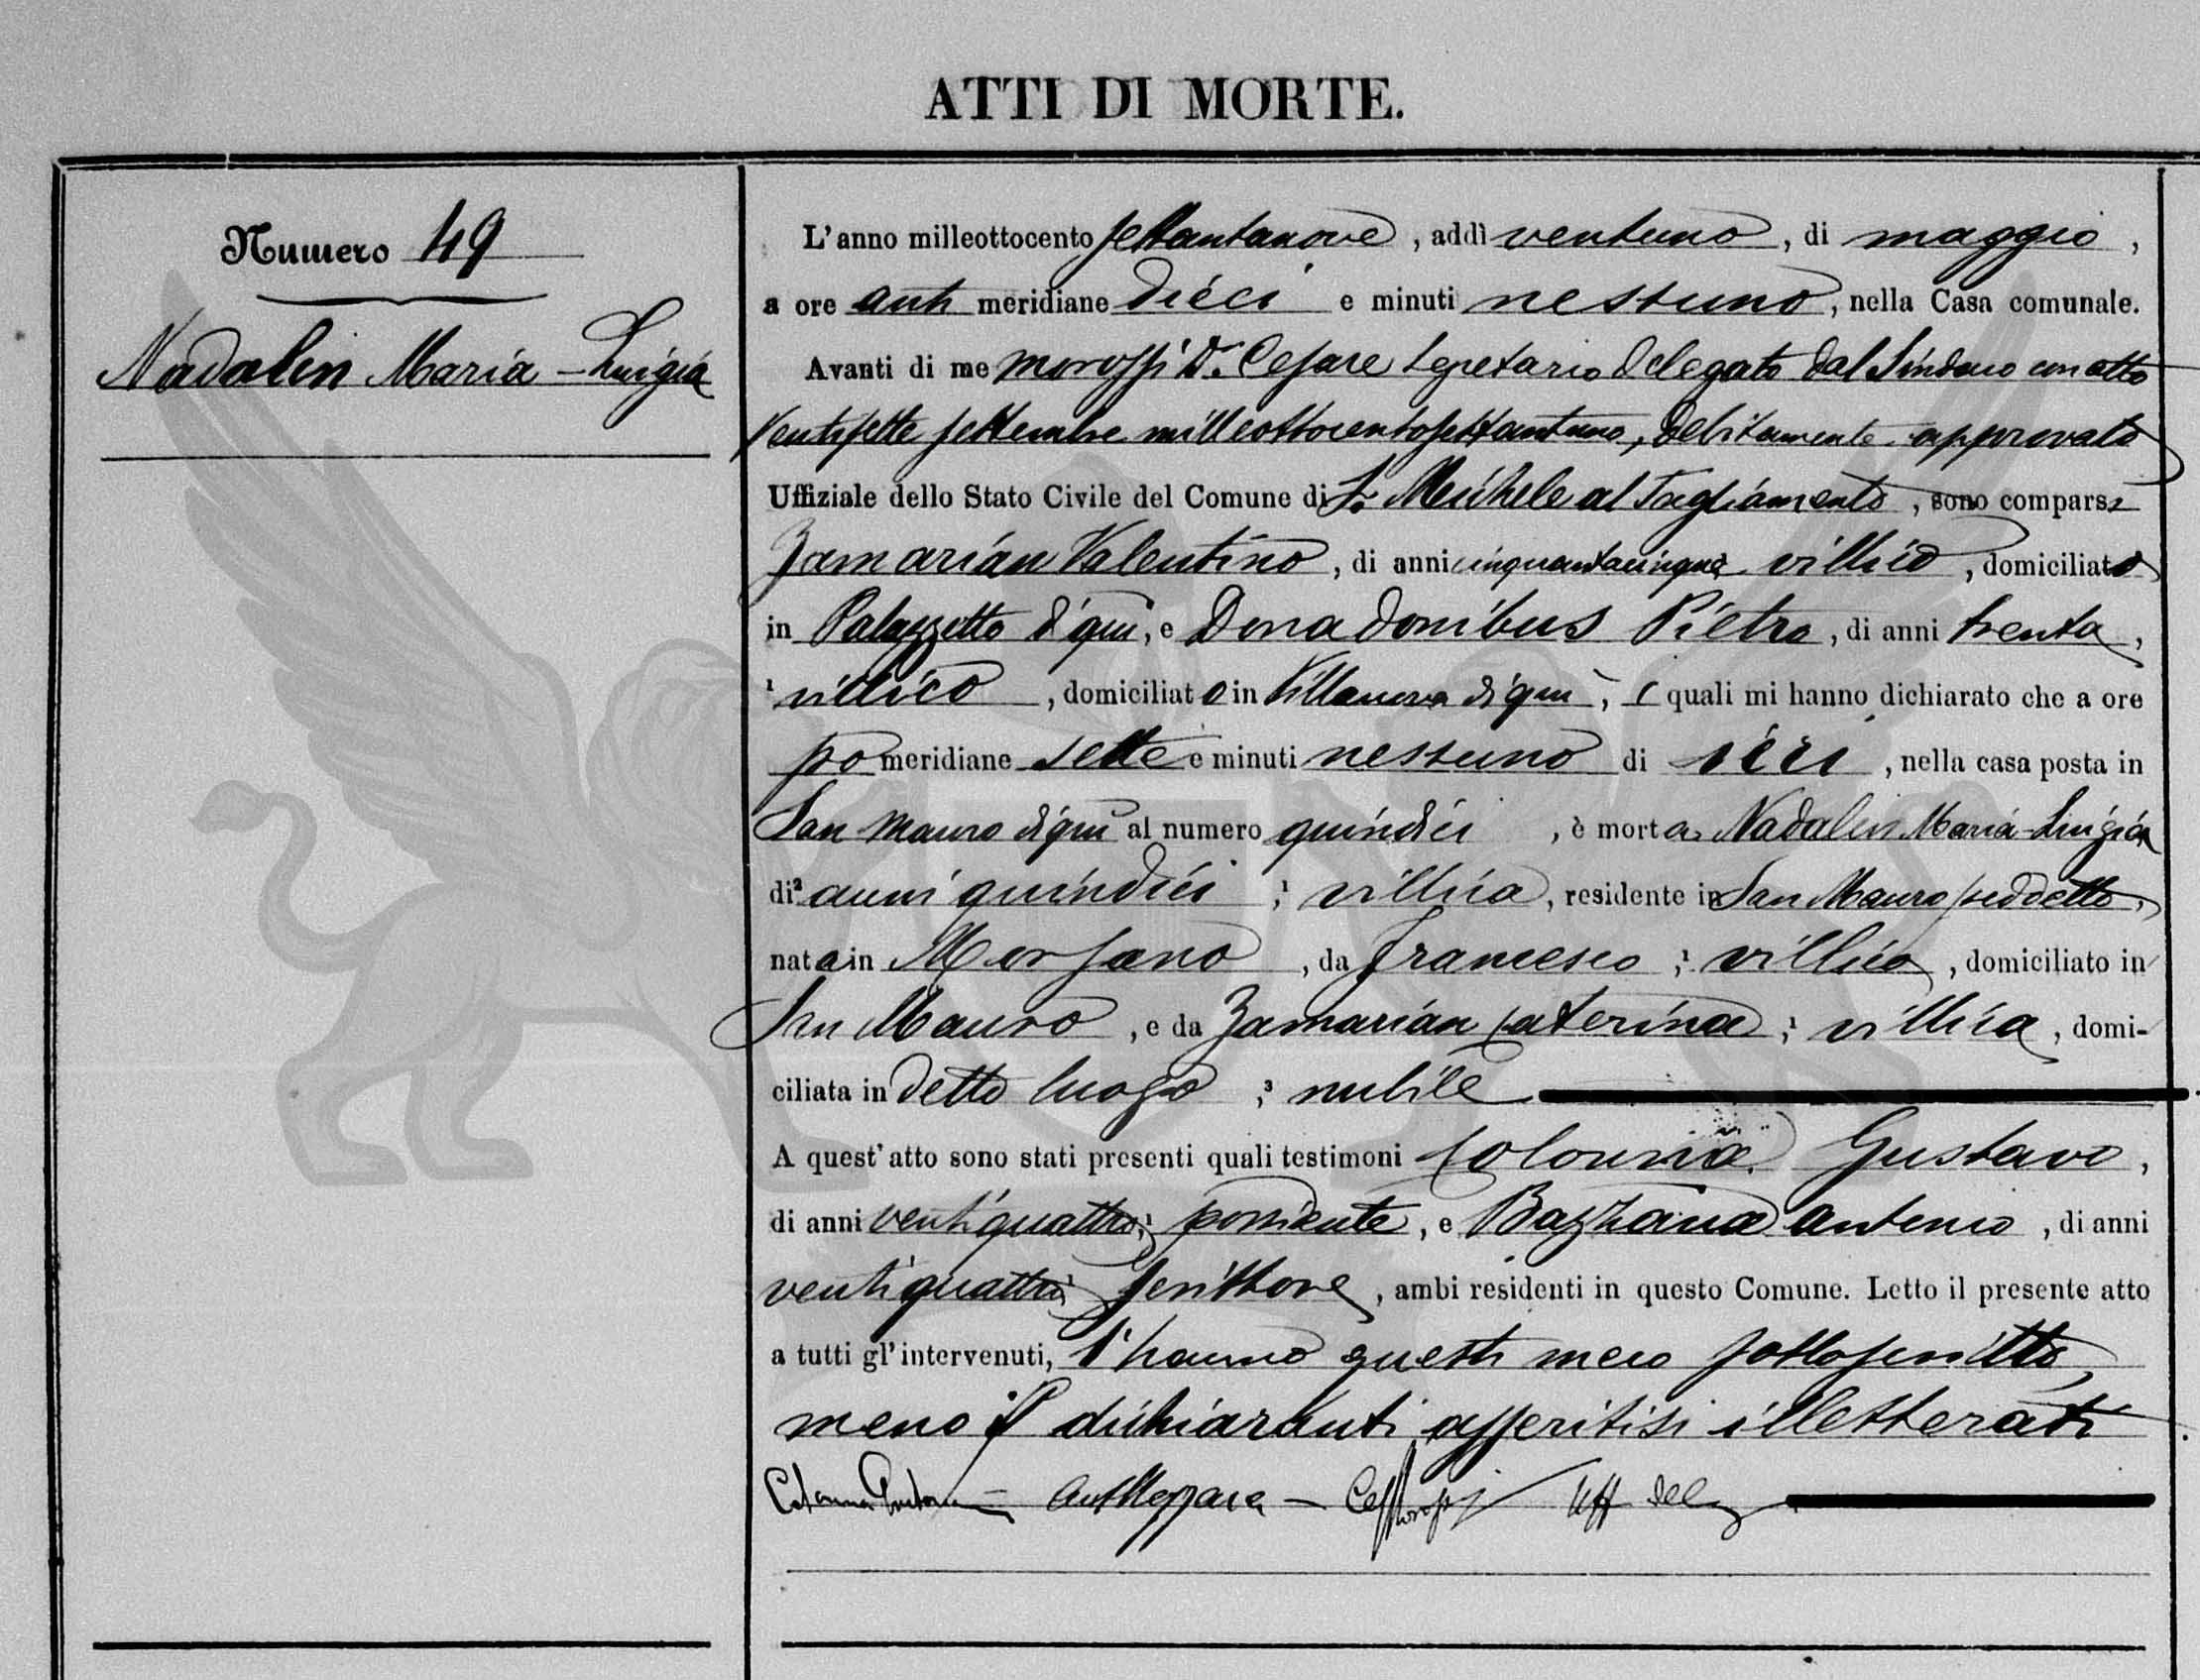 ATTI DI MORTE.
Numero 49
Nadalin Maria-Luigia
L'anno milleottocento settantanove, addì ventuno, di maggio,
a ore anti meridiane dieci e minuti nessuno, nella Casa comunale.
Avanti di me Morossi Dr. Cesare Segretario delegato dal Sindaco con atto
ventisette settembre milleottocentosettantuno, debitamente approvato
Uffiziale dello Stato Civile del Comune di S. Michele al Tagliamento, sono comparsi
Zamarian Valentino, di anni cinquantacinque villico, domiciliato
in Palazzetto di qui, e Donadonibus Pietro, di anni trenta,
¹ villico, domiciliato in Villanova di qui, i quali mi hanno dichiarato che a ore
po meridiane sette e minuti nessuno di ieri, nella casa posta in
San Mauro di qui al numero quindici, è morta Nadalin Maria-Luigia
di² anni quindici ;¹ villica, residente in San Mauro suddetto,
nata in Morsano, da Francesco ;¹ villico, domiciliato in
San Mauro, e da Zamarian Caterina ;¹ villica, domi-
ciliata in detto luogo ;³ nubile
A quest'atto sono stati presenti quali testimoni Colonna Gustavo,
di anni ventiquattro,¹ possidente, e Bazzana Antonio, di anni
ventiquattro¹ scrittore, ambi residenti in questo Comune. Letto il presente atto
a tutti gl'intervenuti, l'hanno questi meco sottoscritto,
meno i dichiaranti asseritisi illetterati
Colonna Gustavo - Ant - Ces Morossi Uff deleg